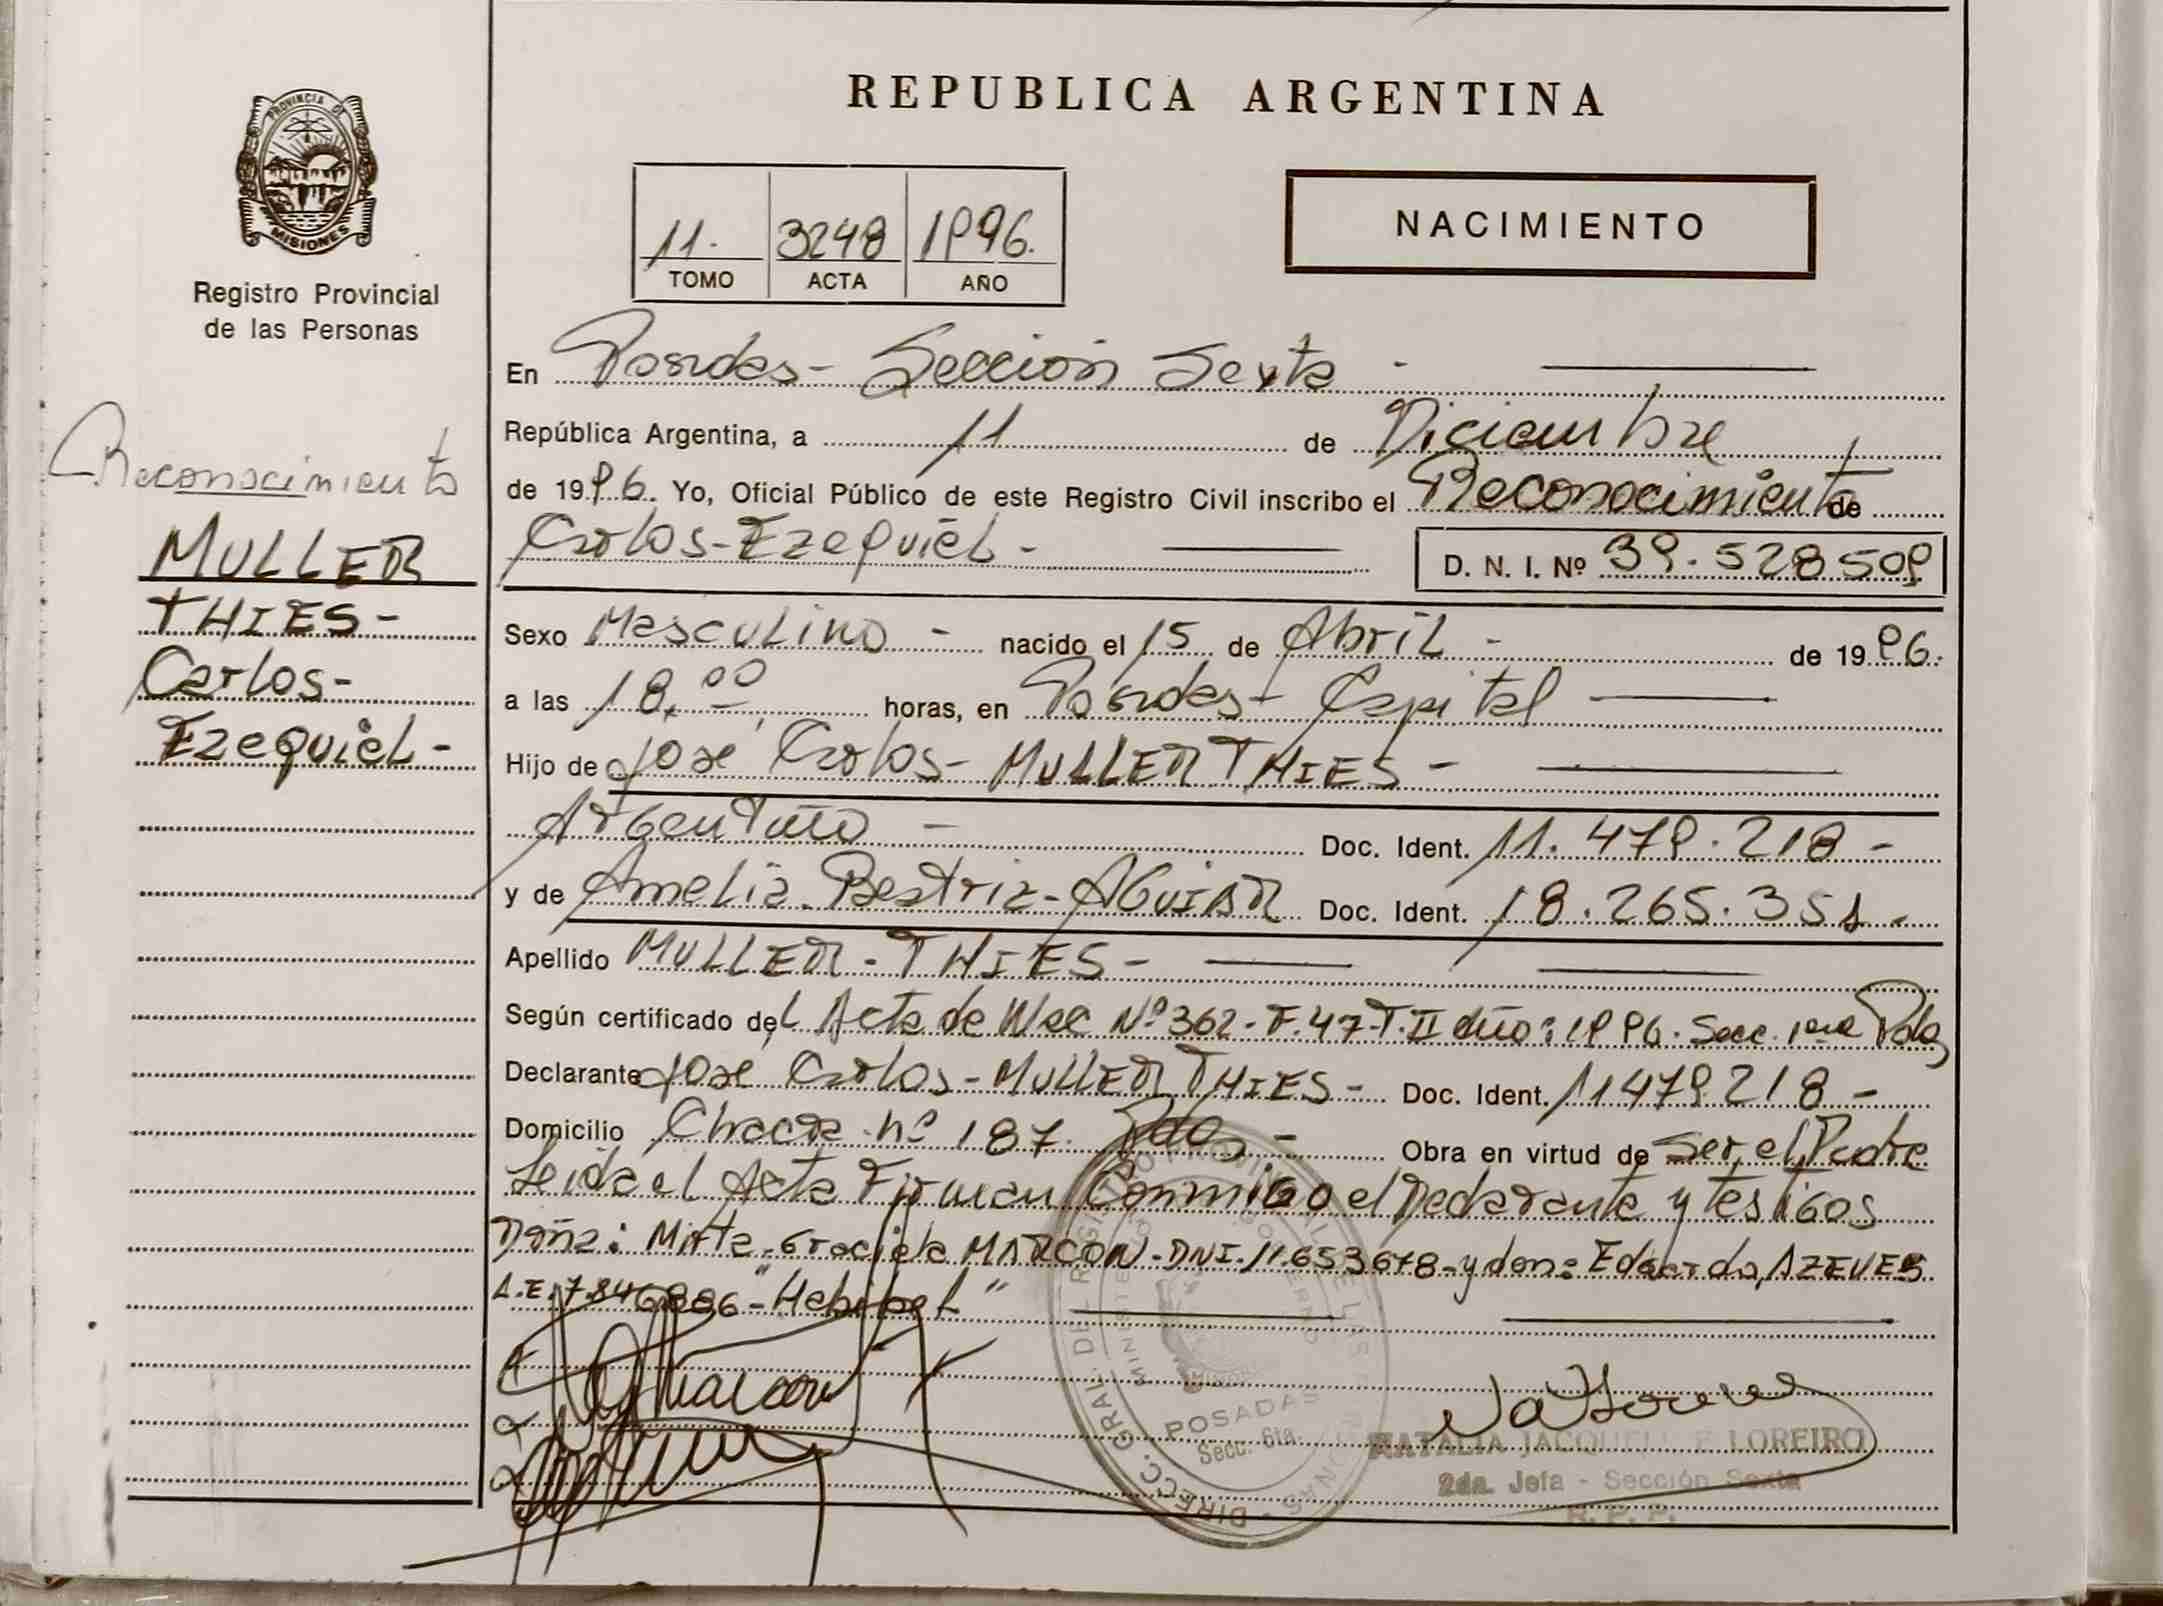 PROVINCIA DE
MISIONES
Registro Provincial
de las Personas
Reconocimiento
MULLER
THIES-
Carlos-
Ezequiel-
REPUBLICA ARGENTINA
11. 3248 1996.
TOMO ACTA AÑO
NACIMIENTO
En Posadas- Sección Sexta -
República Argentina, a 11 de Diciembre
de 1996. Yo, Oficial Público de este Registro Civil inscribo el Reconocimiento de
Carlos-Ezequiel- D. N. I. Nº 39.528509
Sexo Masculino - nacido el 15 de Abril - de 1996.
a las 18,00 horas, en Posadas- Capital
Hijo de José Carlos- MULLER THIES -
Argentino - Doc. Ident. 11.479.218 -
y de Amelia-Beatriz-AGUIAR Doc. Ident. 18.265.351.
Apellido MULLER-THIES-
Según certificado del Acta de Nac Nº 362-F.47-T.II año: 1996. Secc. 1era Pdas
Declarante José Carlos-MULLER THIES- Doc. Ident. 11479218 -
Domicilio Chacra nº 187. Pdas - Obra en virtud de Ser el Padre
Leida el Acta Firman Conmigo el Declarante y testigos
Doña: Mirta-Graciela MARCON-DNI.11.653678-y don: Eduardo AZEVES
L.E. 7.846886-"Habitat"
DIRECC. GRAL. DEL REGISTRO PROVINCIAL DE LAS PERSONAS
POSADAS
Secc. 6ta.
NATALIA JACQUELINE LOREIRO
2da. Jefa - Sección Sexta
R. P. P.